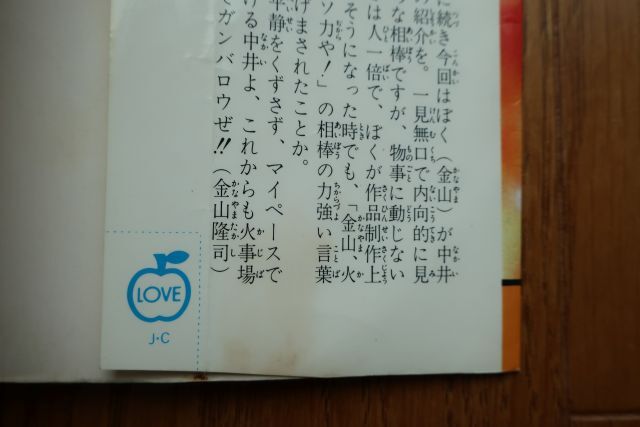 に続き今回はぼく（金山）が中井
の紹介を。一見無口で内向的に見
うな相棒ですが、物事に動じない
は人一倍で、ぼくが作品制作上
そうになった時でも、「金山、火
ソ力や！」の相棒の力強い言葉
げまされたことか。
平静をくずさず、マイペースで
ける中井よ、これからも火事場
でガンバロウぜ!!（金山隆司）
LOVE
J・C